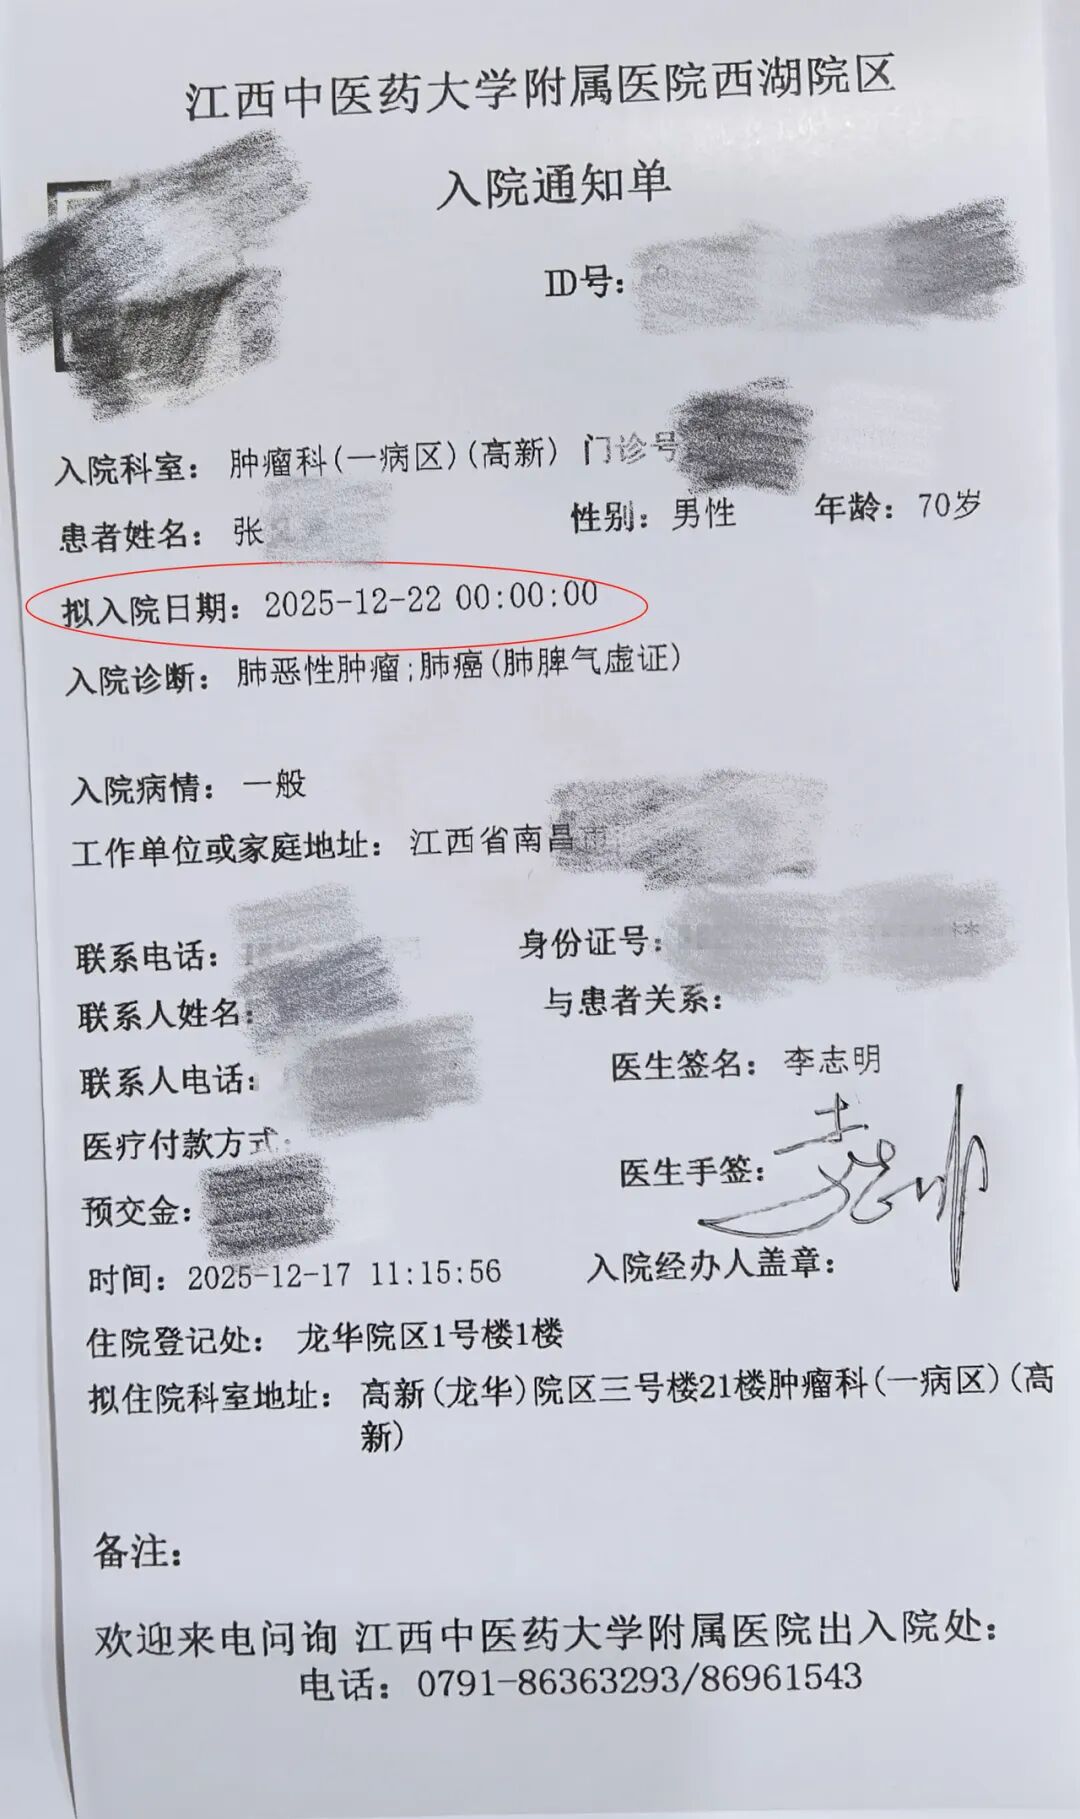 江西中医药大学附属医院西湖院区
入院通知单
ID号：
入院科室： 肿瘤科(一病区)(高新) 门诊号
患者姓名： 张 性别： 男性 年龄： 70岁
拟入院日期： 2025-12-22 00:00:00
入院诊断： 肺恶性肿瘤;肺癌(肺脾气虚证)
入院病情： 一般
工作单位或家庭地址： 江西省南昌市
联系电话： 身份证号： **
联系人姓名： 与患者关系：
联系人电话： 医生签名： 李志明
医疗付款方式： 医生手签：
预交金： 入院经办人盖章：
时间： 2025-12-17 11:15:56
住院登记处： 龙华院区1号楼1楼
拟住院科室地址： 高新(龙华)院区三号楼21楼肿瘤科(一病区)(高
新)
备注：
欢迎来电问询 江西中医药大学附属医院出入院处：
电话： 0791-86363293/86961543